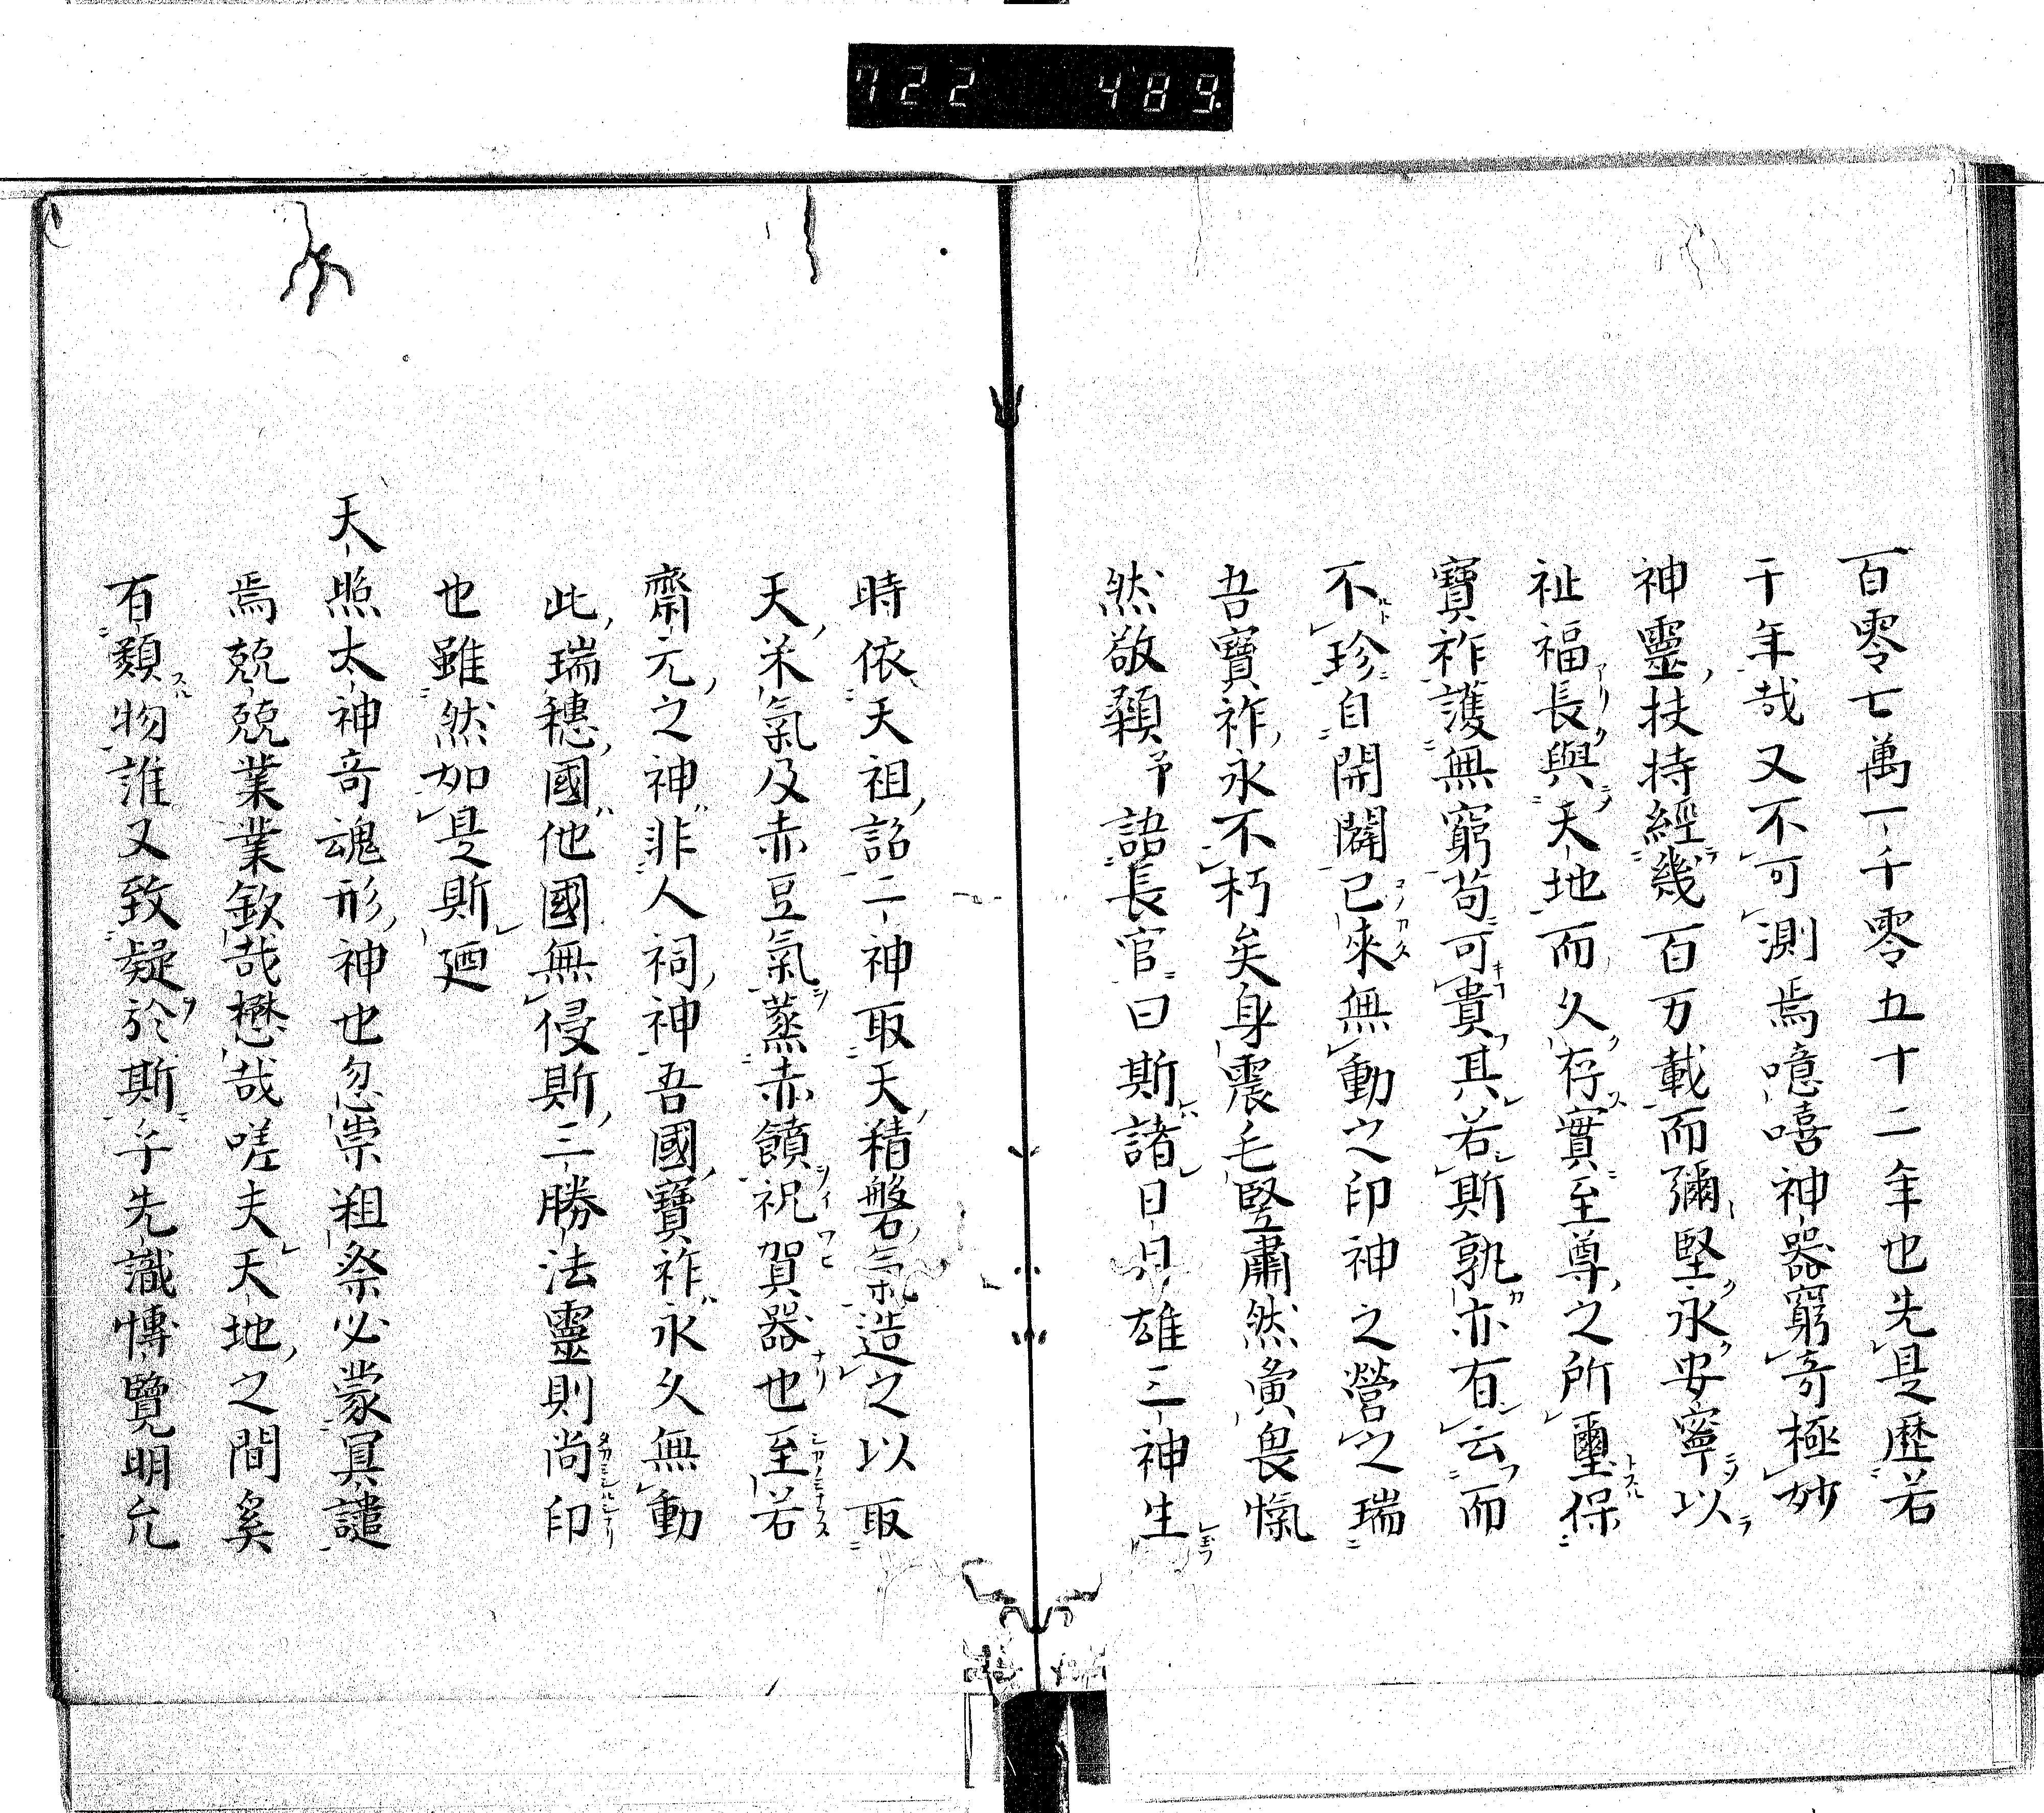 722 489.
百零七萬一千零五十二年也先是歷若
干年哉又不可測焉噫嘻神器窮奇極妙
神靈扶持經幾百万載而彌堅永安寧以
祉福長與天地而久存實至尊之所璽保
寶祚護無窮苟可貴其若斯孰亦有云而
不珍自開闢已來無動之印神之營之瑞
吾寶祚永不朽矣身震毛竪肅然寅畏愾
然敬顙予語長官曰斯諸日月雄三神生
時依天祖詔二神取天積磐氣造之以取
天米氣及赤豆氣蒸赤饙祝賀器也至若
齋元之神非人祠神吾國寶祚永久無動
此瑞穗國他國無侵斯三勝法靈則尚印
也雖然如是斯廼
天照太神奇魂形神也忽祟粗祭必蒙冥譴
焉兢兢業業欽哉懋哉嗟夫天地之間奚
有類物誰又致疑於斯乎先識博覽明允